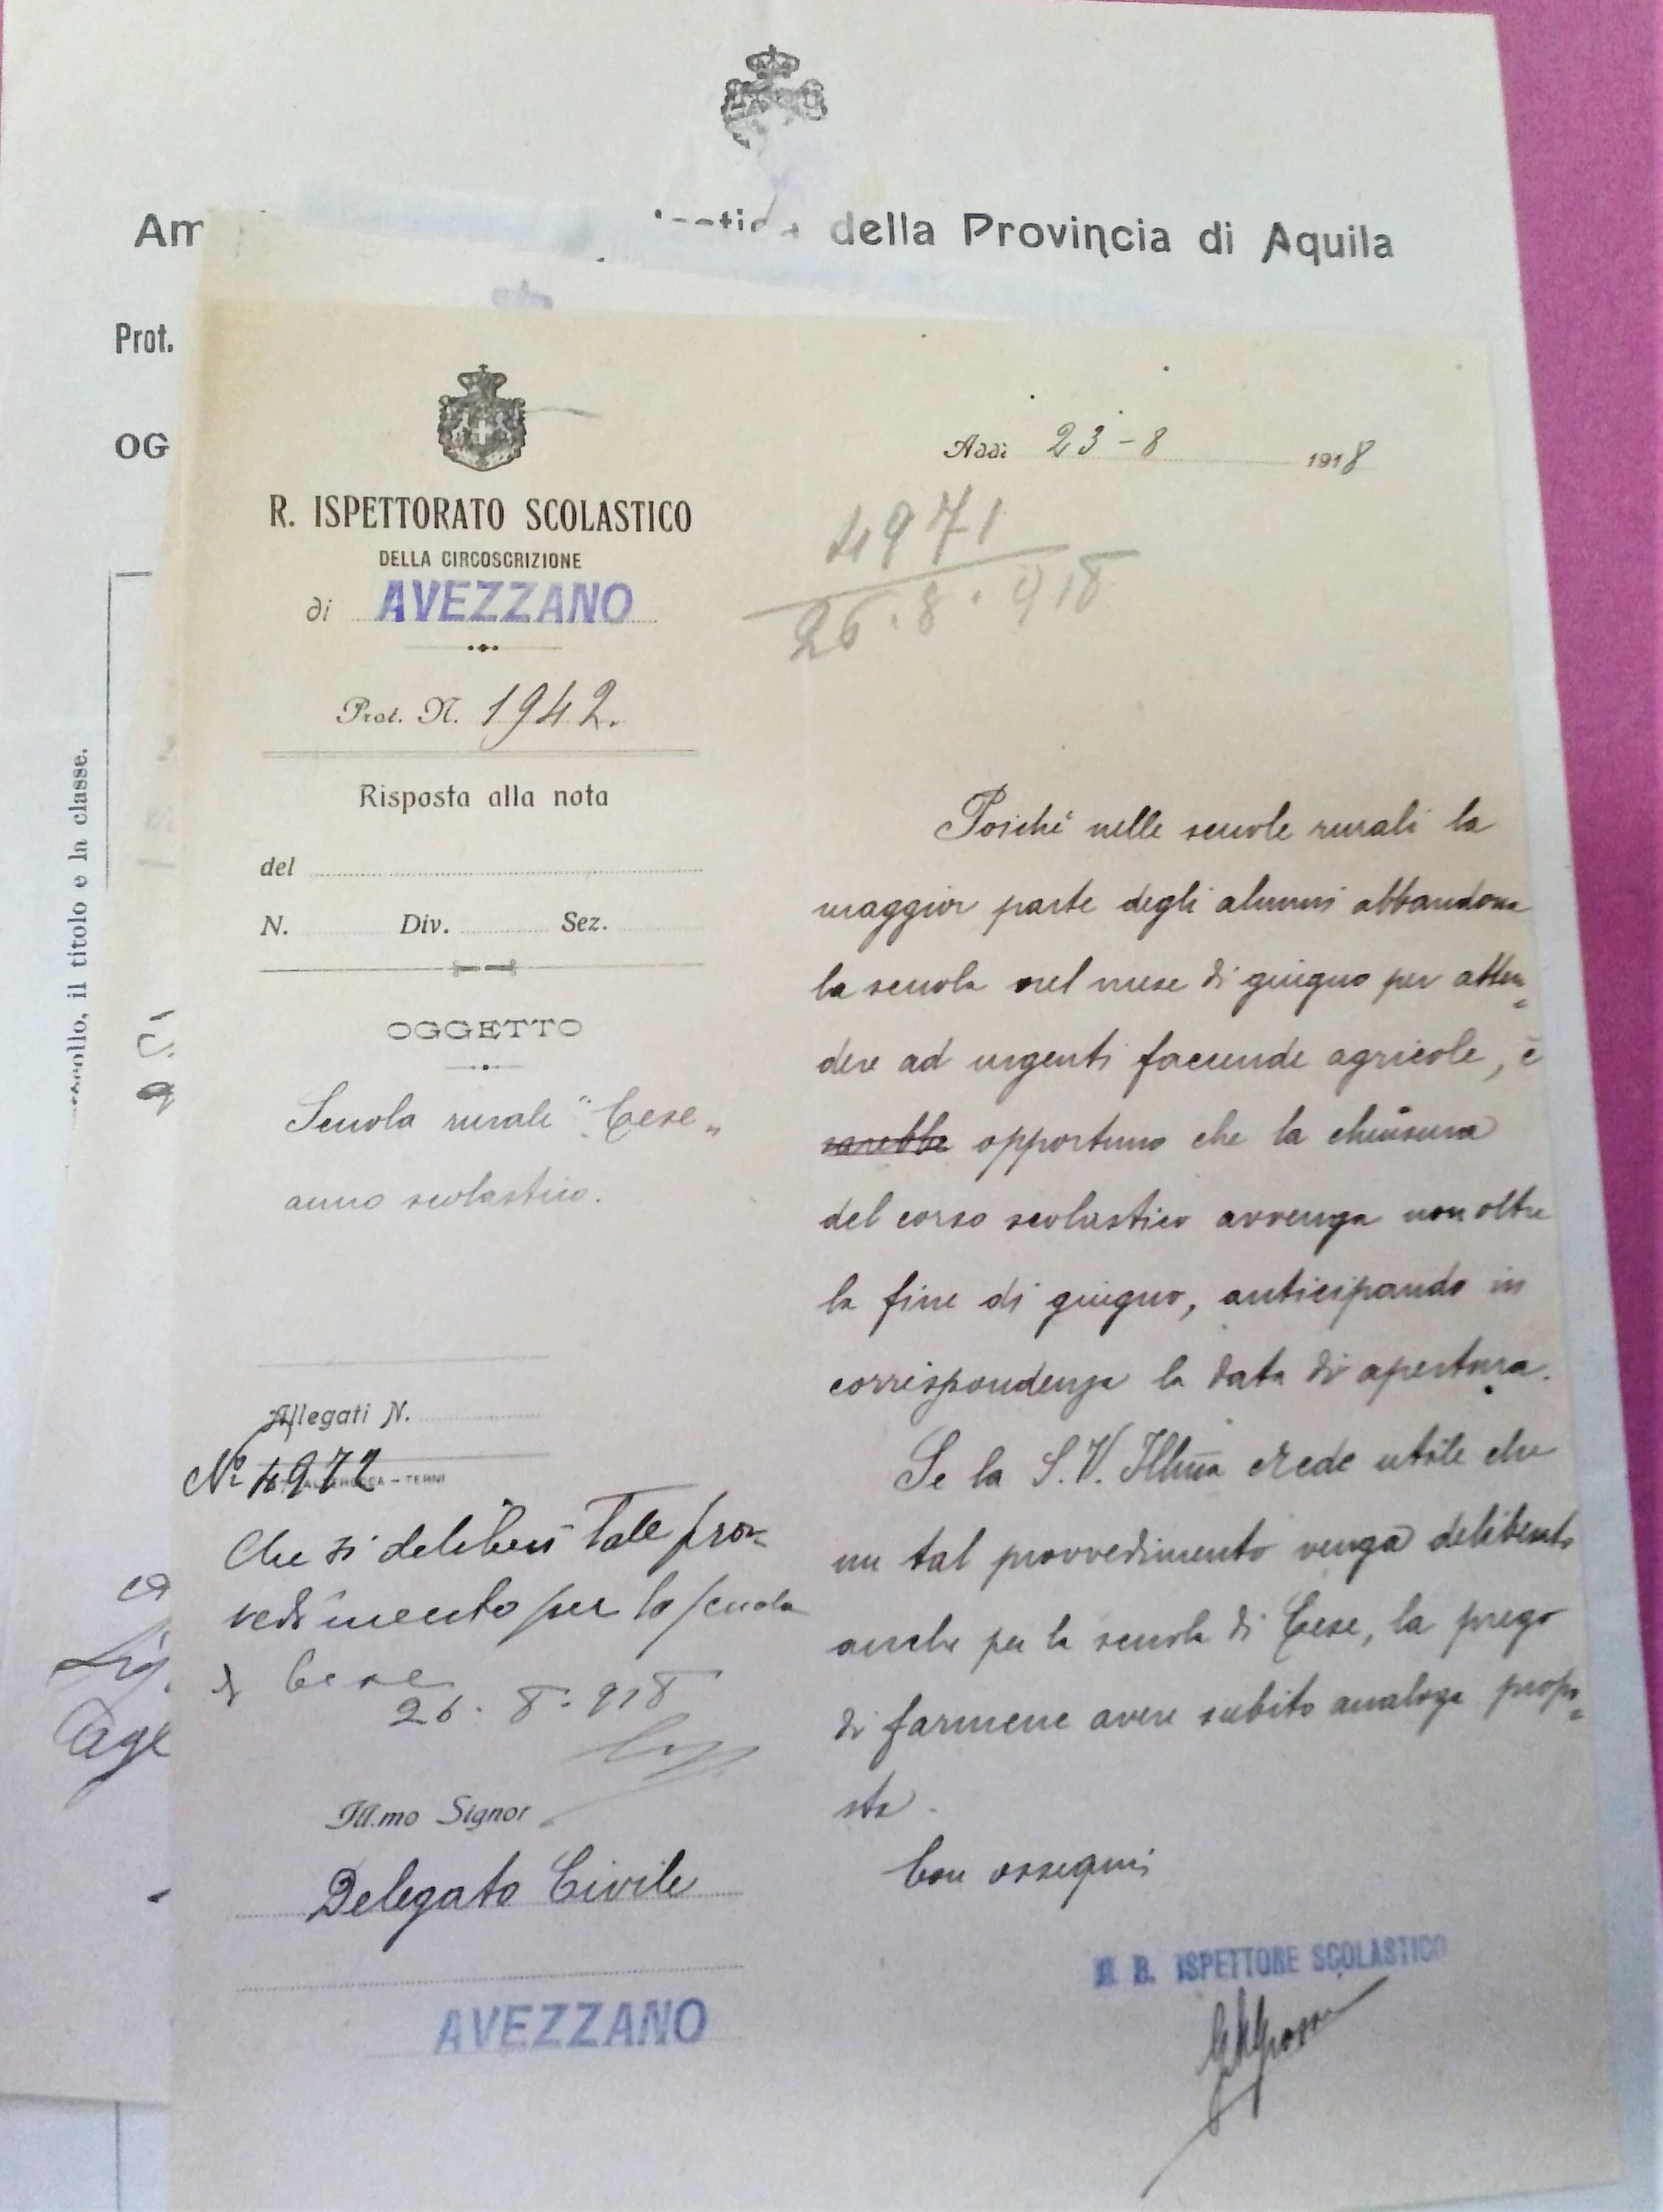 Am
della Provincia di Aquila
Prot.
OG
ollo, il titolo e la classe.
R. ISPETTORATO SCOLASTICO
DELLA CIRCOSCRIZIONE
di AVEZZANO
Prot. N. 1942.
Risposta alla nota
del
N. Div. Sez.
OGGETTO
Scuola rurale "Cese„
anno scolastico.
Allegati N.
TERNI
No 4972
Che si deliberi tale prov-
vedimento per la scuola
di Cese
26.8.918
Ill.mo Signor
Delegato Civile
AVEZZANO
Addì 23-8 1918
4971
26.8.918
Poiché nelle scuole rurali la
maggior parte degli alunni abbandona
la scuola nel mese di giugno per atten=
dere ad urgenti faccende agricole, è
sarebbe opportuno che la chiusura
del corso scolastico avvenga non oltre
la fine di giugno, anticipando in
corrispondenza la data di apertura.
Se la S.V. Illma crede utile che
un tal provvedimento venga deliberato
anche per la scuola di Cese, la prego
di farmene avere subito analoga propo=
sta.
Con ossequi
B. ISPETTORE SCOLASTICO
ca
Sig.
Age